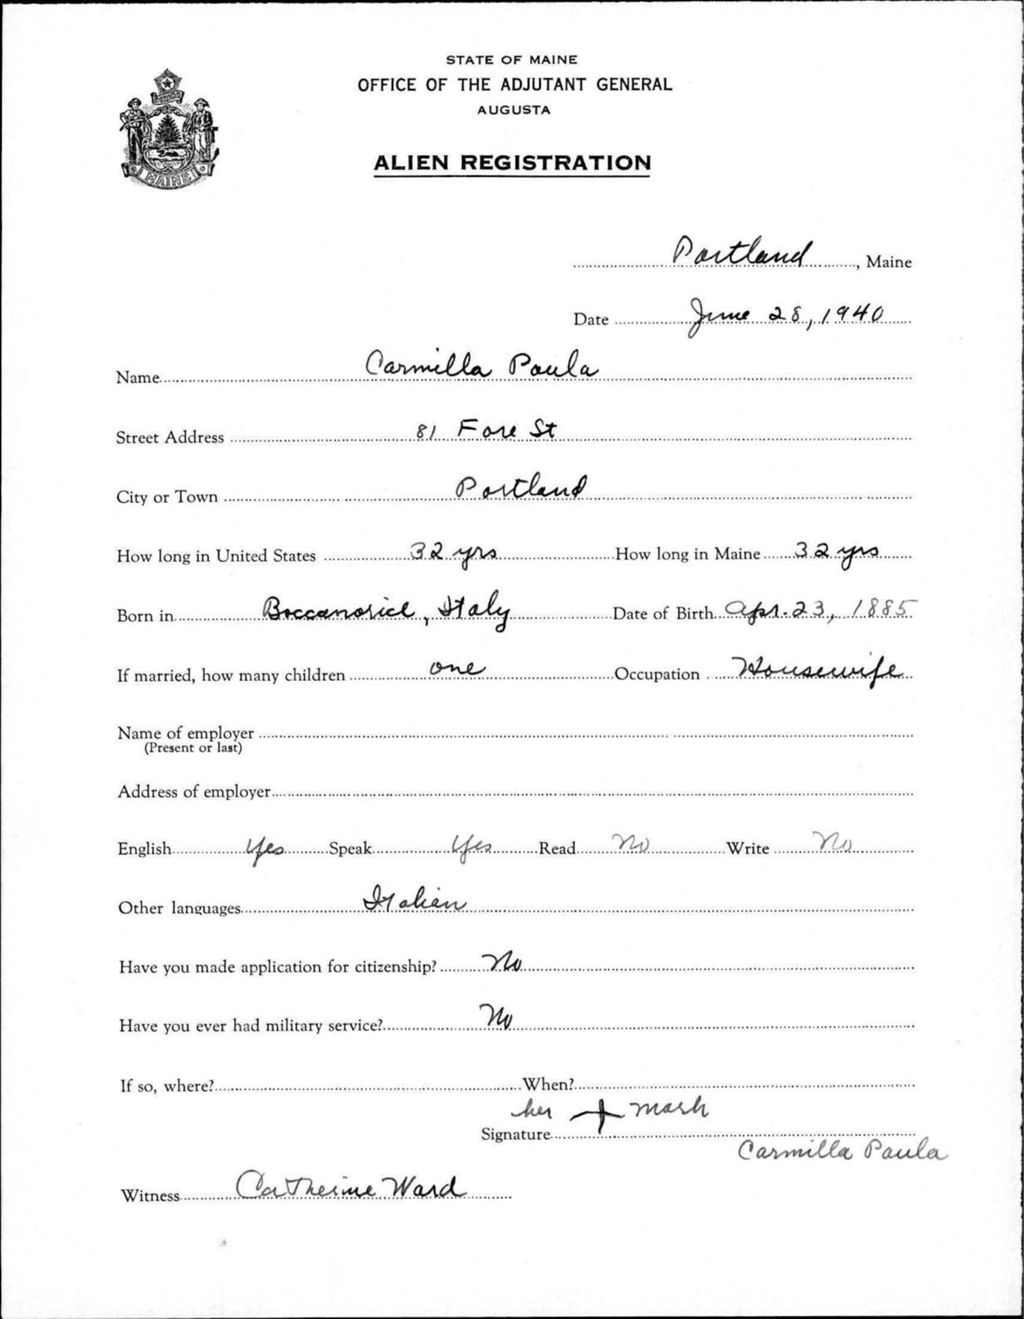 STATE OF MAINE
OFFICE OF THE ADJUTANT GENERAL
AUGUSTA
ALIEN REGISTRATION
MAINE
Portland, Maine
Date June 28, 1940
Name Carmilla Paula
Street Address 81 Fore St
City or Town Portland
How long in United States 32 yrs How long in Maine 32 yrs
Born in Boccanorice, Italy Date of Birth Apr. 23, 1885
If married, how many children one Occupation Housewife
Name of employer
(Present or last)
Address of employer
English Yes Speak Yes Read No Write No
Other languages Italian
Have you made application for citizenship? No
Have you ever had military service? No
If so, where? When?
her + mark
Signature
Carmilla Paula
Witness Catherine Ward